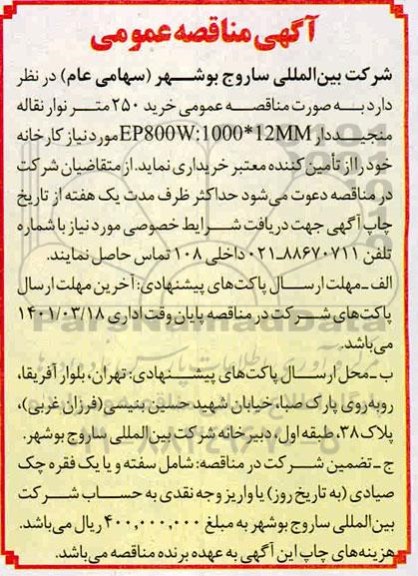 آگهی مناقصه عمومی
شرکت بین‌المللی ساروج بوشهر (سهامی عام) در نظر
دارد به صورت مناقصه عمومی خرید ۲۵۰ متر نوار نقاله
منجیددار EP800W:1000*12MM مورد نیاز کارخانه
خود را از تأمین کننده معتبر خریداری نماید. از متقاضیان شرکت
در مناقصه دعوت می‌شود حداکثر ظرف مدت یک هفته از تاریخ
چاپ آگهی جهت دریافت شرایط خصوصی مورد نیاز با شماره
تلفن ۸۸۶۷۰۷۱۱-۰۲۱ داخلی ۱۰۸ تماس حاصل نمایند.
الف- مهلت ارسال پاکت‌های پیشنهادی: آخرین مهلت ارسال
پاکت‌های شرکت در مناقصه پایان وقت اداری ۱۴۰۱/۰۳/۱۸
می‌باشد.
ب- محل ارسال پاکت‌های پیشنهادی: تهران، بلوار آفریقا،
روبه‌روی پارک صبا، خیابان شهید حسین بنیسی (فرزان غربی)،
پلاک۳۸، طبقه اول، دبیرخانه شرکت بین المللی ساروج بوشهر.
ج- تضمین شرکت در مناقصه: شامل سفته و یا یک فقره چک
صیادی (به تاریخ روز) یا واریز وجه نقدی به حساب شرکت
بین‌المللی ساروج بوشهر به مبلغ ۴۰۰,۰۰۰,۰۰۰ ریال می‌باشد.
هزینه‌های چاپ این آگهی به عهده برنده مناقصه می‌باشد.
ParsNamadData